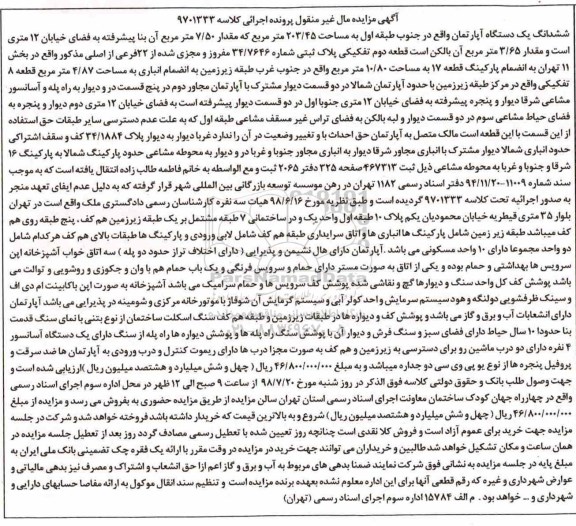 آگهی مزایده مال غیر منقول پرونده اجرائی کلاسه ۹۷۰۱۳۳۳
ششدانگ یک دستگاه آپارتمان واقع در جنوب طبقه اول به مساحت ۲۰۳/۴۵ متر مربع که مقدار ۷/۵۰ متر مربع آن بنا پیشرفته به فضای خیابان ۱۲ متری
است و مقدار ۳/۶۵ متر مربع آن بالکن است قطعه دوم تفکیکی پلاک ثبتی شماره ۳۴/۷۶۴۶ مفروز و مجزی شده از ۲۲ فرعی از اصلی مذکور واقع در بخش
۱۱ تهران به انضمام پارکینگ قطعه ۱۷ به مساحت ۱۰/۸۰ متر مربع واقع در جنوب غرب طبقه زیرزمین به انضمام انباری به مساحت ۴/۸۷ متر مربع قطعه ۸
تفکیکی واقع در مرکز طبقه زیرزمین با حدود آپارتمان شمالا در دو قسمت دیوار مشترک با آپارتمان مجاور دوم در پنج قسمت در و دیوار به راه پله و آسانسور
مشاعی شرقا دیوار و پنجره پیشرفته به فضای خیابان ۱۲ متری جنوبا اول در دو قسمت دیوار پیشرفته است به فضای خیابان ۱۲ متری دوم دیوار و پنجره به
فضای حیاط مشاعی سوم در دو قسمت دیوار و لبه بالکن به فضای تراس غیر مسقف مشاعی طبقه اول که به علت عدم دسترسی سایر طبقات حق استفاده
از این قسمت با این قطعه است مالک متصل به آپارتمان حق احداث بنا و تغییر وضعیت در آن را ندارد غربا دیوار به دیوار پلاک ۳۴/۱۸۸۴ کف و سقف اشتراکی
حدود انباری شمالا دیوار مشترک با انباری مجاور شرقا دیوار به انباری مجاور جنوبا و غربا در و دیوار به محوطه مشاعی حدود پارکینگ شمالا به پارکینگ ۱۶
شرقا و جنوبا و غربا به محوطه مشاعی ذیل ثبت ۴۶۷۳۱۳ صفحه ۳۲۵ دفتر ۲۰۶۵ ثبت و مع الواسطه به خانم فاطمه طالب زاده انتقال یافته است که به موجب
سند شماره ۱۱۰۰۹-۹۴/۱۱/۲۰ دفتر اسناد رسمی ۱۱۸۲ تهران در رهن موسسه توسعه بازرگانی بین المللی شهر قرار گرفته که به دلیل عدم ایفای تعهد منجر
به صدور اجرائیه تحت کلاسه ۹۷۰۱۳۳۳ گردیده است و طبق نظریه مورخ ۹۸/۶/۱۶ هیات سه نفره کارشناسان رسمی دادگستری ملک واقع است در تهران
بلوار ۳۵ متری قیطریه خیابان محمودیان یکم پلاک ۱۰ طبقه اول واحد یک و در ساختمانی ۷ طبقه مشتمل بر یک طبقه زیرزمین هم کف، پنج طبقه روی هم
کف میباشد طبقه زیر زمین شامل پارکینگ ها انباری ها و اتاق سرایداری طبقه هم کف شامل لابی ورودی و پارکینگ ها طبقات بالای هم کف هر کدام شامل
دو واحد مجموعا دارای ۱۰ واحد مسکونی می باشد. آپارتمان دارای هال نشیمن و پذیرایی (دارای اختلاف تراز حدود دو پله) سه اتاق خواب آشپزخانه اپن
سرویس ها بهداشتی و حمام بوده و یکی از اتاق به صورت مستر دارای حمام و سرویس فرنگی و یک باب حمام هم با وان و جکوزی و روشویی و توالت می
باشد پوشش کف کل واحد سنگ و دیوارها گچ و نقاشی شده پوشش کف سرویس ها و حمام سرامیک می باشد آشپزخانه به صورت اپن با کابینت ام دی اف
و سینک ظرفشویی دولنگه و هود سیستم سرمایش واحد کولر آبی و سیستم گرمایش آن شوفاژ با موتورخانه مرکزی و شومینه در پذیرایی می باشد آپارتمان
دارای انشعابات آب و برق و گاز می باشد و پوشش کف و دیواره ها در طبقات زیرزمین و طبقه هم کف سنگ اسکلت ساختمان از نوع بتنی با نمای سنگ قدمت
بنا حدودا ۱۰ سال حیاط دارای فضای سبز و سنگ فرش و دیوار آن با پوشش سنگ راه پله ها و پوشش دیواره ها راه پله از سنگ دارای یک دستگاه آسانسور
۴ نفره دارای دو درب ماشین رو برای دسترسی به زیرزمین و هم کف به صورت مجزا درب ها دارای ریموت کنترل و درب ورودی به آپارتمان ها ضد سرقت و
پروفیل پنجره ها از نوع یو پی وی سی دو جداره میباشد و به مبلغ ۴۶/۸۰۰/۰۰۰/۰۰۰ ریال (چهل و شش میلیارد و هشتصد میلیون ریال) ارزیابی شده است و
جهت وصول طلب بانک و حقوق دولتی کلاسه فوق الذکر در روز شنبه مورخ ۹۸/۷/۲۰ از ساعت ۹ صبح الی ۱۲ ظهر در محل اداره سوم اجرای اسناد رسمی
واقع در چهارراه جهان کودک ساختمان معاونت اجرای اسناد رسمی استان تهران سالن مزایده از طریق مزایده حضوری به فروش می رسد و مزایده از مبلغ
۴۶/۸۰۰/۰۰۰/۰۰۰ ریال (چهل و شش میلیارد و هشتصد میلیون ریال) شروع و به بالاترین قیمت که خریدار داشته باشد فروخته خواهد شد و شرکت در جلسه
مزایده جهت خرید برای عموم آزاد است و فروش کلا نقدی است چنانچه روز تعیین شده با تعطیل رسمی مصادف گردد روز بعد از تعطیل جلسه مزایده در
همان ساعت و مکان تشکیل خواهد شد طالبین و خریداران می توانند جهت خرید در مزایده در وقت مقرر با ارائه یک فقره چک تضمینی بانک ملی ایران به
مبلغ پایه در جلسه مزایده به نشانی فوق شرکت نمایند ضمنا بدهی های مربوط به آب و برق و گاز اعم از حق انشعاب و اشتراک و مصرف نیز بدهی مالیاتی و
عوارض شهرداری و غیره که رقم قطعی آنها برای این اداره معلوم نشده بعهده برنده مزایده است و تنظیم سند انتقال موکول به ارائه مفاصا حسابهای دارایی و
شهرداری و ... خواهد بود. م الف ۱۵۷۸۴ اداره سوم اجرای اسناد رسمی (تهران)